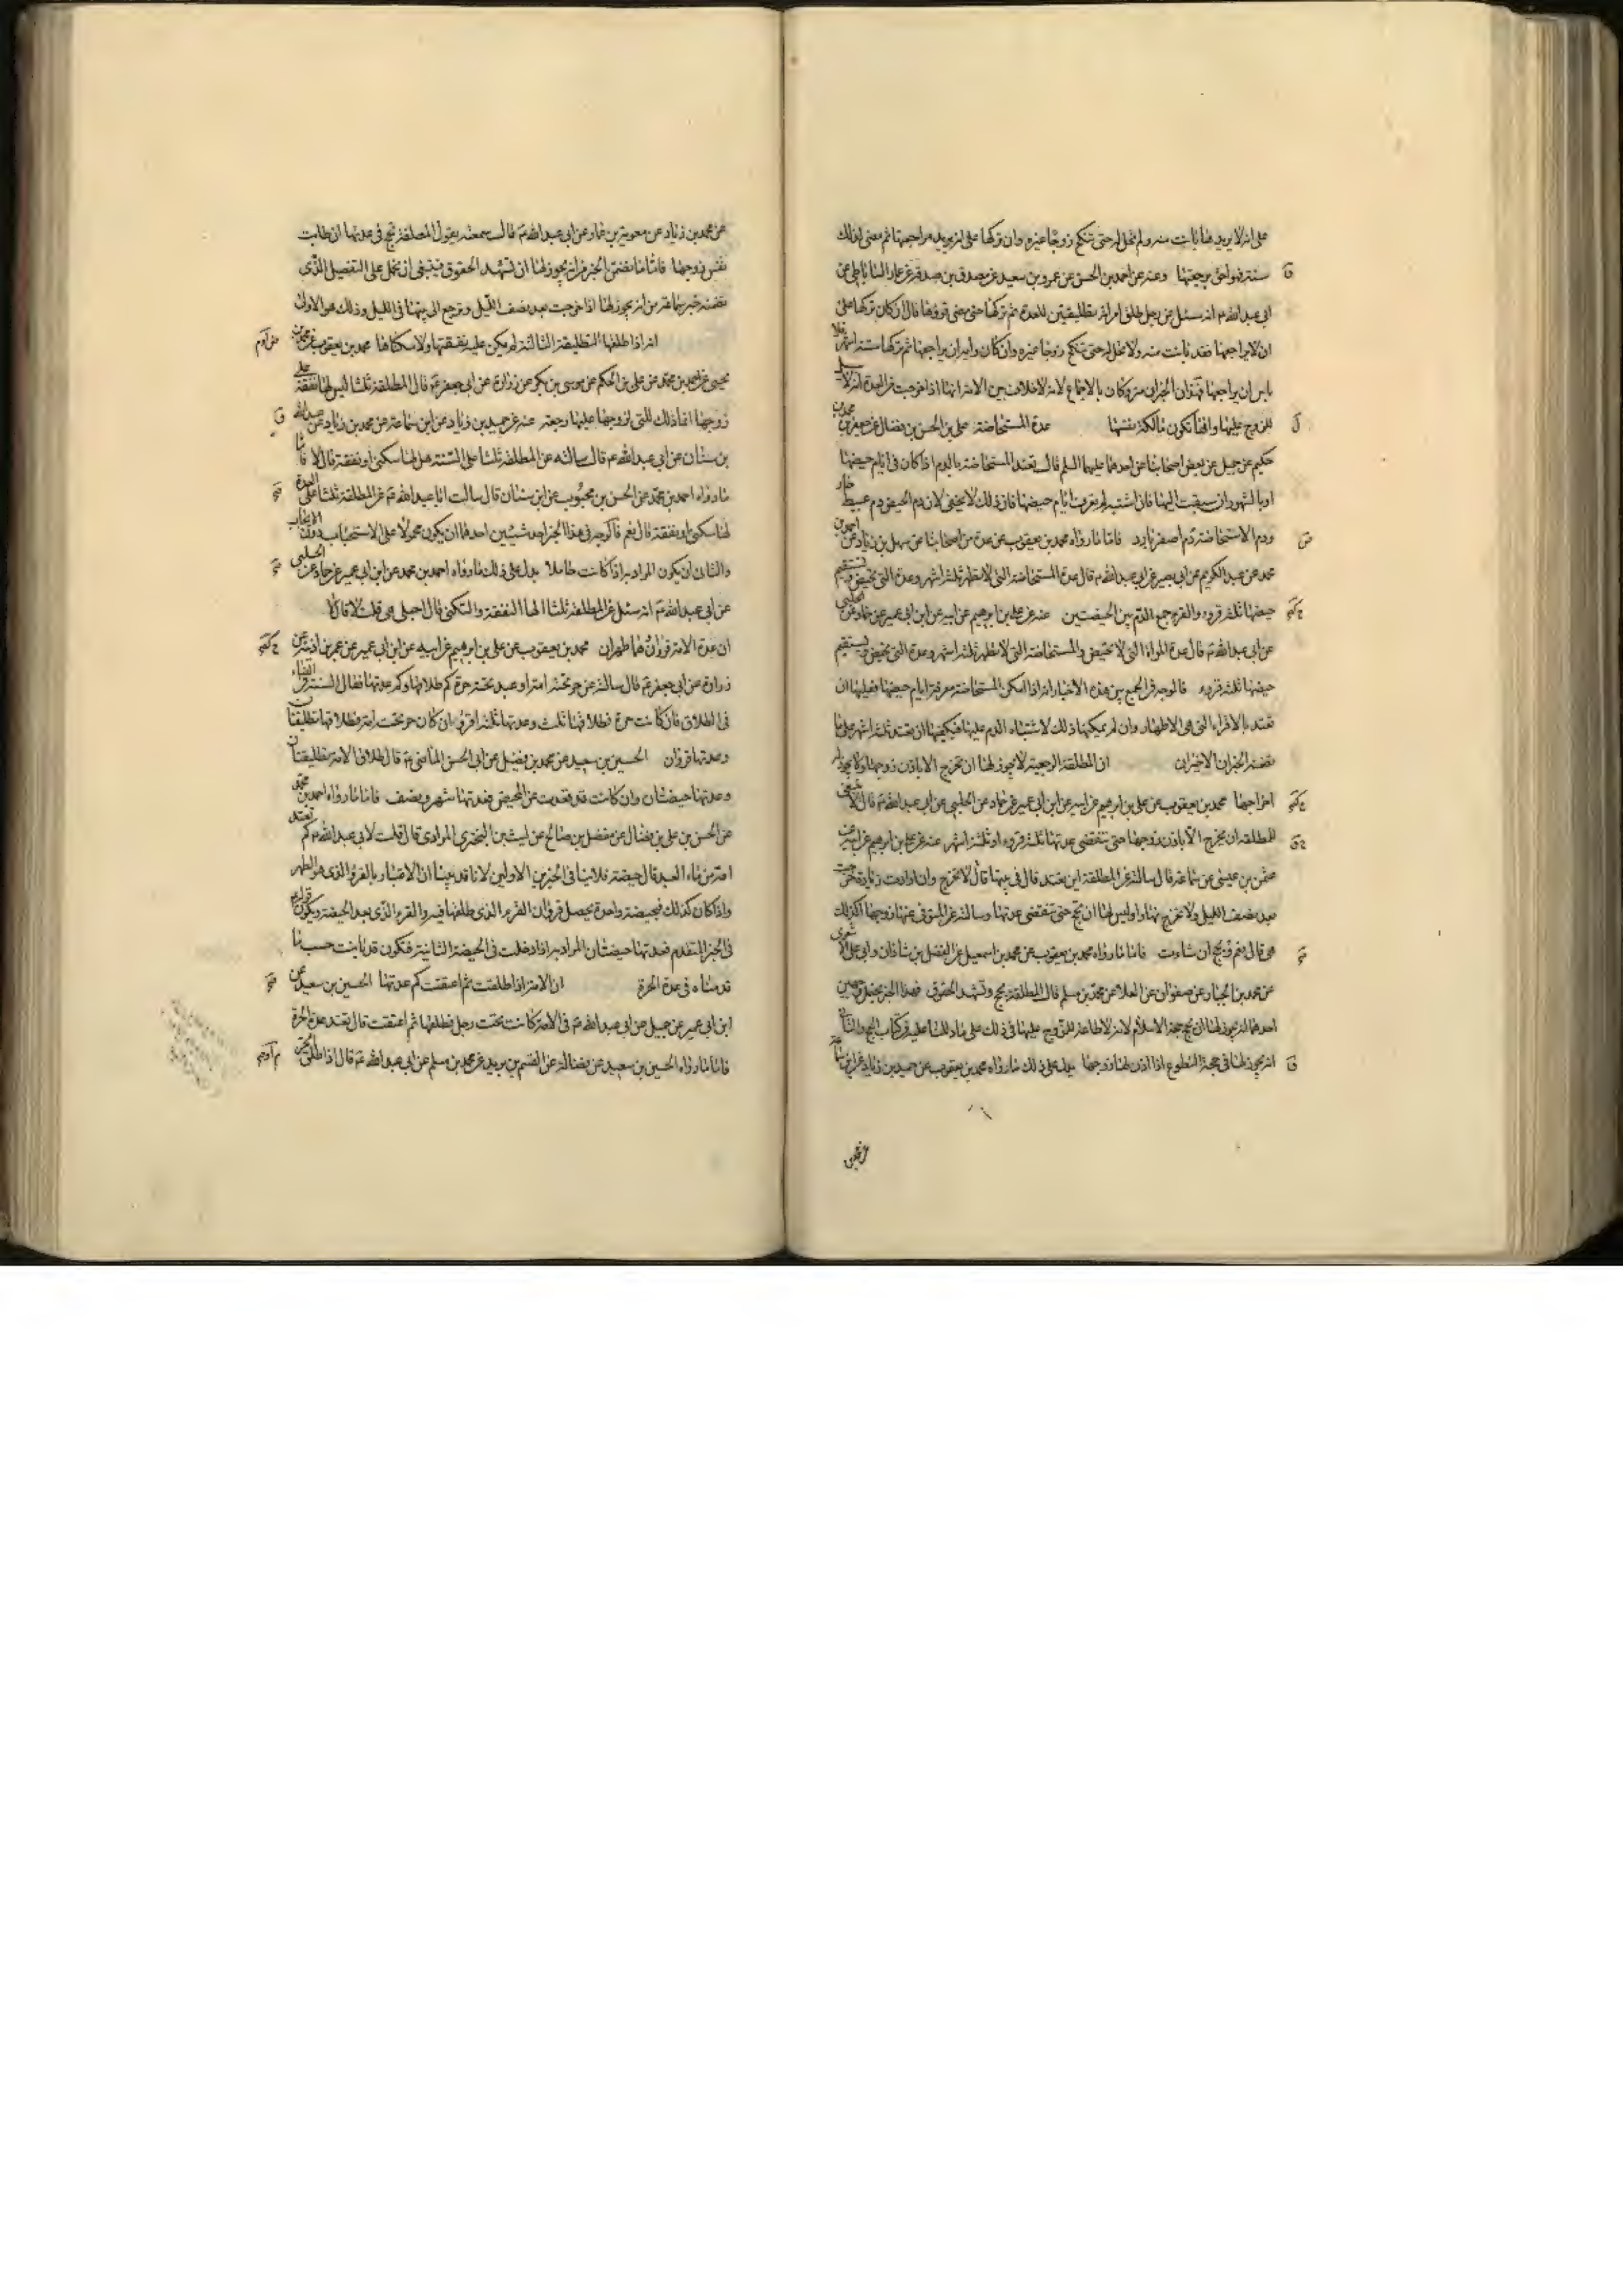 على انه لا يريدها بانت منه ولم تحل له حتى تنكح زوجا غيره وان تركها على انه يريد مراجعتها ثم مضى لذلك
سنة فهو احق برجعتها وعنه عن احمد بن الحسن عن عمرو بن سعيد عن مصدق بن صدقة عن عمار الساباطي عن
ابي عبدالله ع انه سئل عن رجل طلق امراته تطليقتين للعدة ثم تركها حتى مضى قروؤها قال ان كان تركها على
ان لا يراجعها فقد بانت منه ولا تحل له حتى تنكح زوجا غيره وان كان رايه ان يراجعها ثم تركها ستة اشهر فلا
باس ان يراجعها فهذان الخبران متروكان بالاجماع لانه لا خلاف بين الامة انها اذا خرجت من العدة انه لا سبيل
للزوج عليها وانها تكون مالكة نفسها عدة المستحاضة علي بن الحسن بن فضال عن محمد بن
حكيم عن جميل عن بعض اصحابنا عن احدهما عليهما السلم قال تعتد المستحاضة بالدم اذا كان في ايام حيضها
او بالشهور ان سبقت اليها فان اشتبه لم يعرف ايام حيضها فان ذلك لا يخفى لان دم الحيض دم عبيط حار
ودم الاستحاضة دم اصفر بارد فاما ما رواه محمد بن يعقوب عن عدة من اصحابنا عن سهل بن زياد عن احمد بن
محمد عن عبد الكريم عن ابي بصير عن ابي عبدالله ع قال عدة المستحاضة التي لا تطهر ثلثة اشهر وعدة التي تحيض ويستقيم
حيضها ثلثة قروء والقرء جمع الدم بين الحيضتين عنه عن علي بن ابرهيم عن ابيه عن ابن ابي عمير عن حماد عن الحلبي
عن ابي عبدالله ع قال عدة المراة التي لا تحيض والمستحاضة التي لا تطهر ثلثة اشهر وعدة التي تحيض ويستقيم
حيضها ثلثة قروء فالوجه في الجمع بين هذه الاخبار انه اذا امكن المستحاضة معرفة ايام حيضها فعليها ان
تعتد بالاقراء التي هي الاطهار وان لم يمكنها ذلك لاشتباه الدم عليها فيكفيها ان تعتد ثلثة اشهر على ما
تضمنه الخبران الاخيران ان المطلقة الرجعية لا يجوز لها ان تخرج الا باذن زوجها ولا يجوز له
اخراجها محمد بن يعقوب عن علي بن ابرهيم عن ابيه عن ابن ابي عمير عن حماد عن الحلبي عن ابي عبدالله ع قال لا ينبغي
للمطلقة ان تخرج الا باذن زوجها حتى تنقضي عدتها ثلثة قروء او ثلثة اشهر عنه عن علي بن ابرهيم عن ابيه عن
عثمن بن عيسى عن سماعة قال سالته عن المطلقة اين تعتد قال في بيتها قال لا تخرج وان ارادت زيارة خرجت
بعد نصف الليل ولا تخرج نهارا وليس لها ان تحج حتى تنقضي عدتها وسالته عن المتوفى عنها زوجها اكذلك
هي قال نعم وتحج ان شاءت فاما ما رواه محمد بن يعقوب عن محمد بن اسمعيل عن الفضل بن شاذان وابي علي الاشعري
عن محمد بن عبد الجبار عن صفوان عن العلا عن محمد بن مسلم قال المطلقة تحج وتشهد الحقوق فهذا الخبر يحتمل وجهين
احدهما انه يجوز لها ان تحج حجة الاسلام لانه لا طاعة للزوج عليها في ذلك على ما دللنا عليه في كتاب الحج والثاني
انه يجوز لها في حجة التطوع اذا اذن لها زوجها يدل على ذلك ما رواه محمد بن يعقوب عن حميد بن زياد عن ابن سماعة
عن محمد بن
عن محمد بن زياد عن معوية بن عمار عن ابي عبدالله ع قال سمعته يقول المطلقة تحج في عدتها ان طابت
نفس زوجها فاما ما تضمن الخبر من انه يجوز لها ان تشهد الحقوق فينبغي ان نحمل على التفصيل الذي
تضمنه خبر سماعة من انه يجوز لها اذا خرجت بعد نصف الليل وترجع الى بيتها في الليل وذلك هو الاولى
انه اذا طلقها التطليقة الثالثة لم يكن عليه نفقتها ولا سكناها محمد بن يعقوب عن محمد بن
يحيى عن احمد بن محمد عن علي بن الحكم عن موسى بن بكر عن زرارة عن ابي جعفر ع قال المطلقة ثلثا ليس لها نفقة على
زوجها انما ذلك للتي لزوجها عليها رجعة عنه عن حميد بن زياد عن ابن سماعة عن محمد بن زياد عن عبدالله
بن سنان عن ابي عبدالله ع قال سالته عن المطلقة ثلثا على السنة هل لها سكنى او نفقة قال لا فاما
ما رواه احمد بن محمد عن الحسن بن محبوب عن ابن سنان قال سالت ابا عبدالله ع عن المطلقة ثلثا على العدة
لها سكنى او نفقة قال نعم فالوجه في هذا الخبر احد شيئين احدهما ان يكون محمولا على الاستحباب دون الايجاب
والثاني ان يكون المراد به اذا كانت حاملا يدل على ذلك ما رواه احمد بن محمد عن ابن ابي عمير عن حماد عن الحلبي
عن ابي عبدالله ع انه سئل عن المطلقة ثلثا الها النفقة والسكنى قال احبلى هي قلت لا قال لا
ان عدة الامة قرؤان وهما طهران محمد بن يعقوب عن علي بن ابرهيم عن ابيه عن ابن ابي عمير عن عمر بن اذينة عن
زرارة عن ابي جعفر ع قال سالته عن حر تحته امة او عبد تحته حرة كم طلاقها وكم عدتها فقال السنة في النساء
في الطلاق فان كانت حرة فطلاقها ثلث وعدتها ثلثة اقراء وان كان حر تحت امة فطلاقها تطليقتان
وعدتها قرؤان الحسين بن سعيد عن محمد بن فضيل عن ابي الحسن الماضي ع قال طلاق الامة تطليقتان
وعدتها حيضتان وان كانت قد قعدت عن المحيض فعدتها شهر ونصف فاما ما رواه احمد بن محمد
عن الحسن بن علي بن فضال عن مفضل بن صالح عن ليث بن البختري المرادي قال قلت لابي عبدالله ع كم تعتد
امة من ماء العبد قال حيضة فلا ينافي الخبرين الاولين لانا قد بينا ان الاعتبار بالقرء الذي هو الطهر
واذا كان كذلك فبحيضة واحدة يحصل قرؤان القرء الذي طلقها فيه والقرء الذي بعد الحيضة ويكون قوله
في الخبر المتقدم فعدتها حيضتان المراد به اذا دخلت في الحيضة الثانية فتكون قد بانت حسب ما
قدمناه في عدة الحرة ان الامة اذا طلقت ثم اعتقت كم عدتها الحسين بن سعيد عن
ابن ابي عمير عن جميل عن ابي عبدالله ع في الامة كانت تحت رجل فطلقها ثم اعتقت قال تعتد عدة الحرة
فاما ما رواه الحسين بن سعيد عن فضالة عن القسم بن بريد عن محمد بن مسلم عن ابي عبدالله ع قال اذا طلق الحر